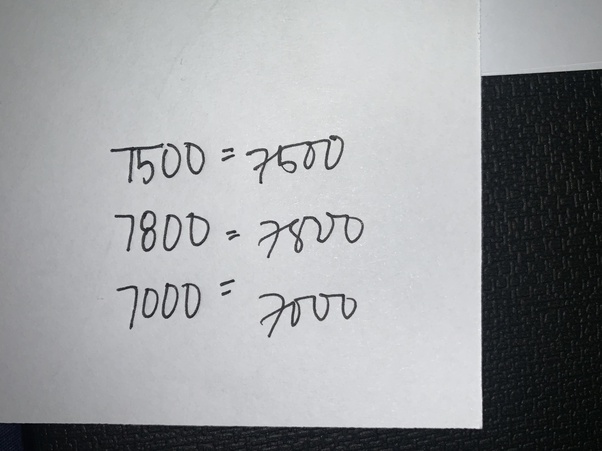 7500 = 7500
7800 = 7800
7000 = 7000